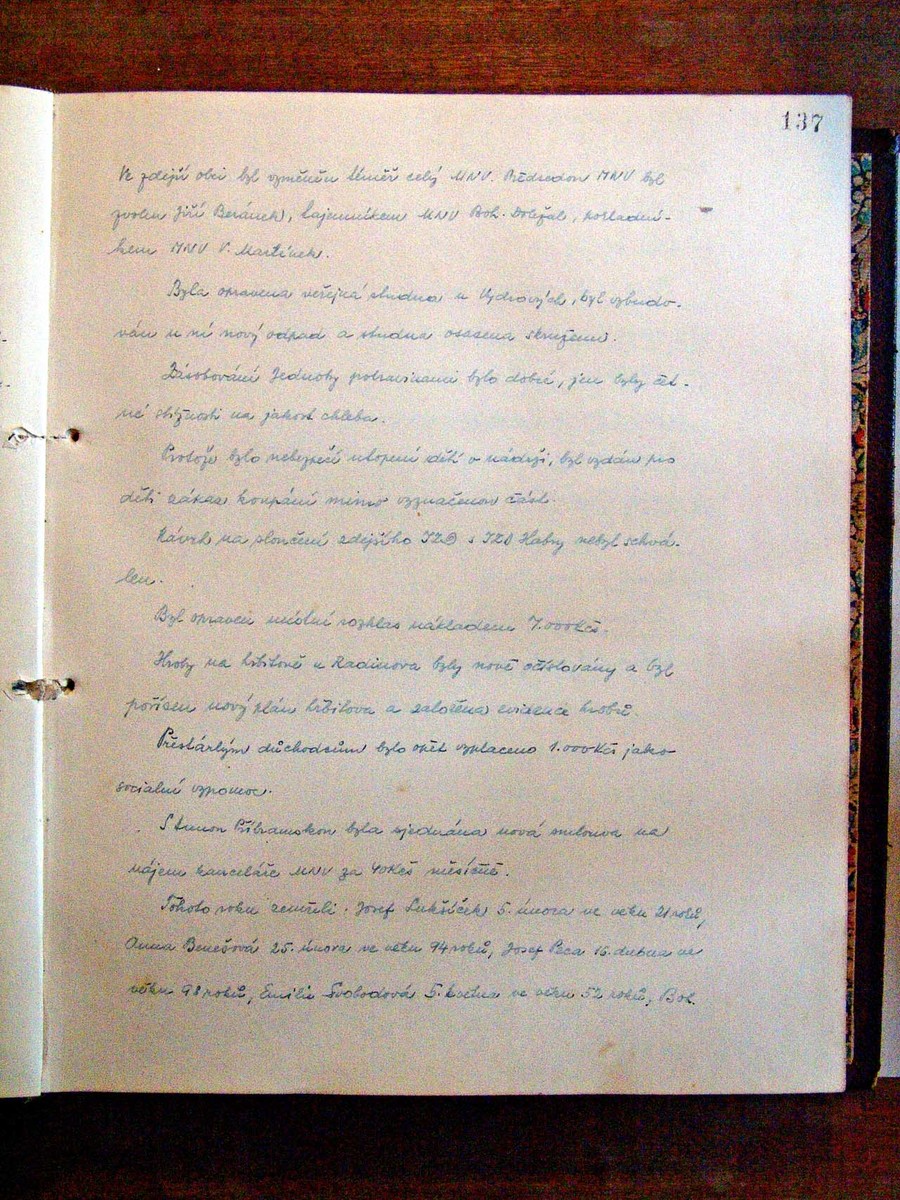 137
Ve zdejší obci byl vyměněn téměř celý MNV. Předsedou MNV byl
zvolen Jiří Beránek, tajemníkem MNV Boh. Doležal, pokladní-
kem MNV V. Martínek.
Byla opravena veřejná studna u Vydrových, byl vybudo-
ván u ní nový odpad a studna osazena skružemi.
Zásobování Jednoty potravinami bylo dobré, jen byly čet-
né stížnosti na jakost chleba.
Protože bylo nebezpečí utopení dětí v nádrži, byl vydán pro
děti zákaz koupání mimo vyznačenou část.
Návrh na sloučení zdejšího JZD s JZD Habry nebyl schvá-
len.
Byl opraven místní rozhlas nákladem 7.000 Kčs.
Hroby na hřbitově u Radinova byly nově očíslovány a byl
pořízen nový plán hřbitova a založena evidence hrobů.
Přestárlým důchodcům bylo opět vyplaceno 1.000 Kčs jako
socialní výpomoc.
S Annou Příbramskou byla sjednána nová smlouva na
nájem kanceláře MNV za 40 Kčs měsíčně.
Tohoto roku zemřeli: Josef Lukšíček 5. února ve věku 21 roků,
Anna Benešová 25. února ve věku 94 roků, Josef Peca 16. dubna ve
věku 98 roků, Emilie Svobodová 5. května ve věku 52 roků, Boh.